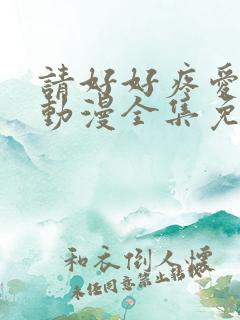 請好好疼愛
動漫全集免
和衣倒人懷
未任同意禁止轉載